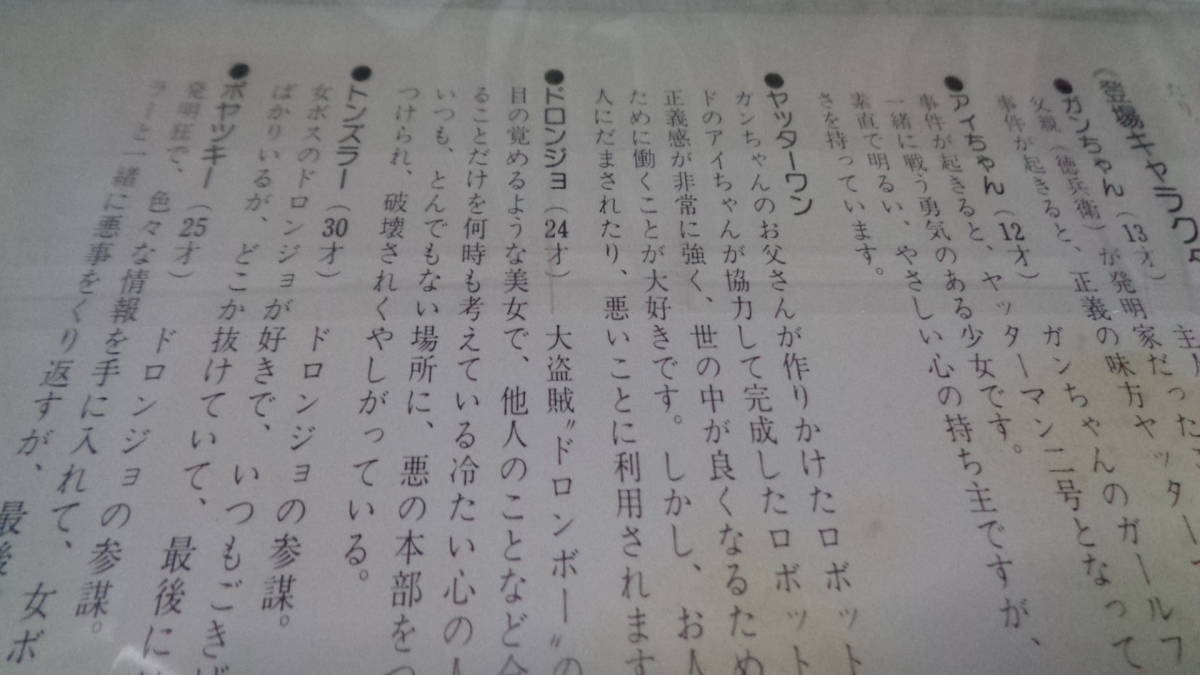 たり
(登場キャラク
●ガンちゃん(13才) 主
父親(徳兵衛)が発明家だった
事件が起きると、正義の味方ヤッター
●アイちゃん(12才) ガンちゃんのガールフ
事件が起きると、ヤッターマン二号となって
一緒に戦う勇気のある少女です。
素直で明るい、やさしい心の持ち主ですが、
さを持っています。
●ヤッターワン
ガンちゃんのお父さんが作りかけたロボット
ドのアイちゃんが協力して完成したロボット
正義感が非常に強く、世の中が良くなるため
ために働くことが大好きです。しかし、お人
人にだまされたり、悪いことに利用されます
●ドロンジョ(24才) 大盗賊〝ドロンボー〟の
目の覚めるような美女で、他人のことなど
ることだけを何時も考えている冷たい心の人
いつも、とんでもない場所に、悪の本部をつ
つけられ、破壊されくやしがっている。
●トンズラー(30才) ドロンジョの参謀。
女ボスのドロンジョが好きで、いつもごきげ
ばかりいるが、どこか抜けていて、最後に
●ボヤッキー(25才) ドロンジョの参謀。
発明狂で、色々な情報を手に入れて、女ボ
ラーと一緒に悪事をくり返すが、最後